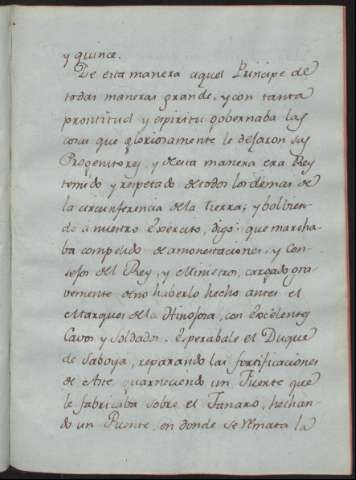 y quince.
De esta manera aquel Principe de
todas maneras grande, y con tanta
prontitud y espiritu gobernaba las
cosas que gloriosamente le dejaron sus
Progenitores, y desta manera era Rey
temido y respetado de todos los demas de
la circunferencia de la tierra; y bolvien-
do a nuestro Exercito, digo: que marcha-
ba compelido de amonestaciones, y Con-
sejos del Rey, y Ministros, cargado gra-
vemente de no haberlo hecho antes el
Marques de la Hinojosa, con Excelentes
Cavos y Soldados. Esperabale el Duque
de Saboya, reparando las fortificaciones
de Aste, guarneciendo un Fuerte que
le fabricaba sobre el Tanaro, hechan-
do un Puente, en donde se remata la